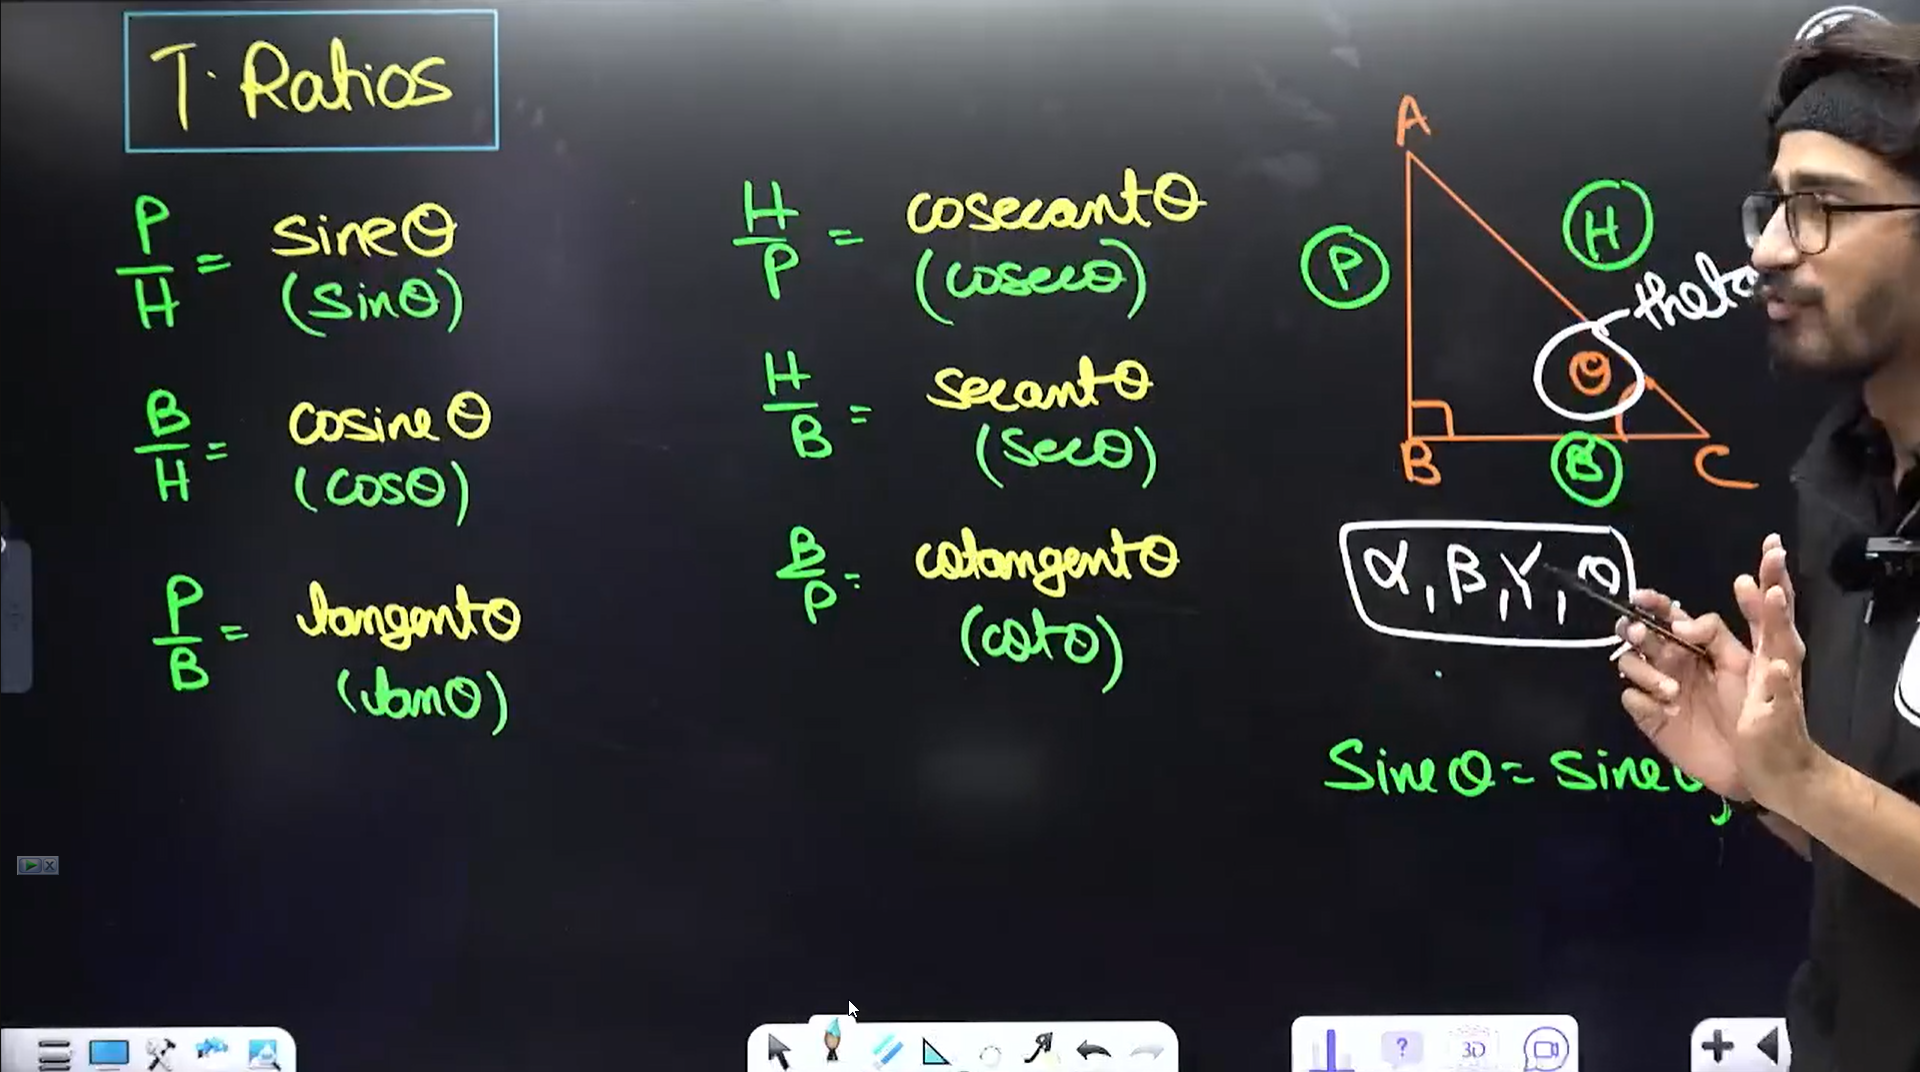 T. Ratios
P/H = sineθ
(sinθ)
B/H = cosineθ
(cosθ)
P/B = tangentθ
(tanθ)
H/P = cosecantθ
(cosecθ)
H/B = secantθ
(secθ)
B/P = cotangentθ
(cotθ)
A
P
H
theta
θ
B
B
C
α, β, γ, θ
Sineθ = sine
?
3D